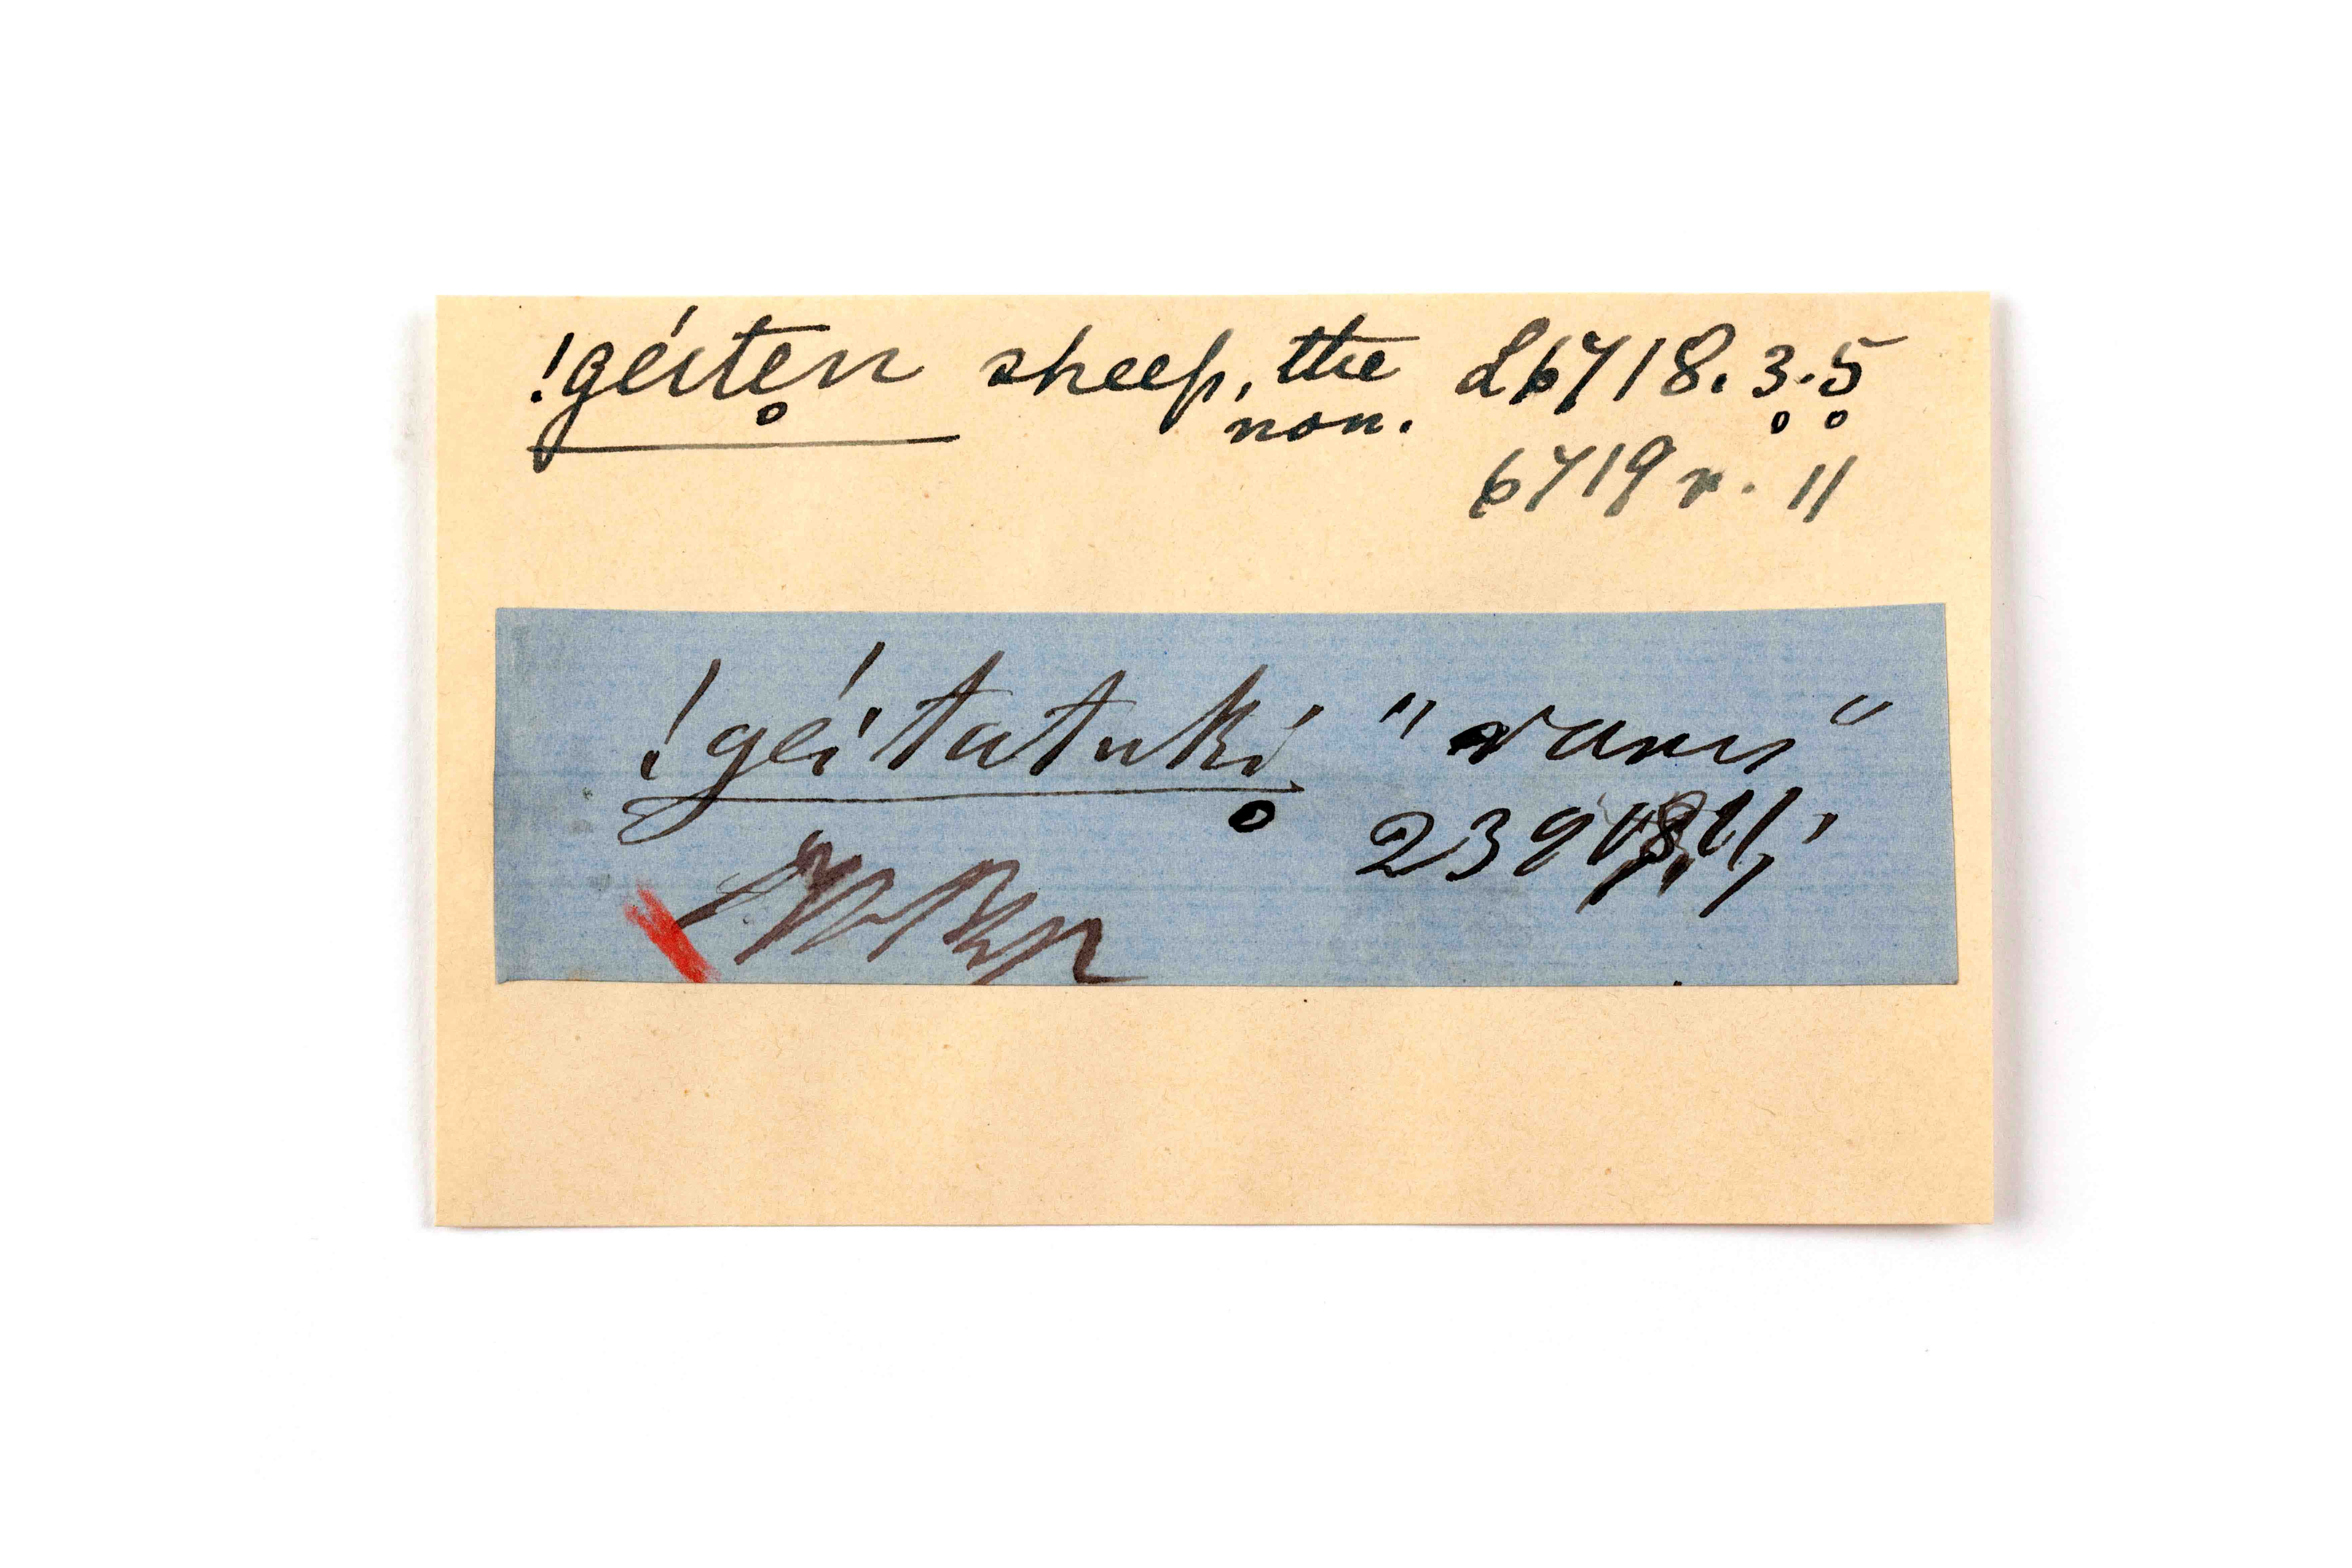 !géiten̥ sheep, the L6718. 3. 5
non.
6719 r. 11
!géi tatuki "rams"